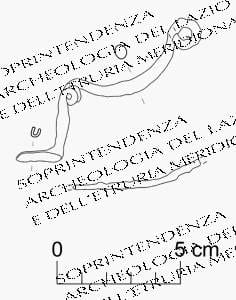 SOPRINTENDENZA
ARCHEOLOGIA DEL LAZIO
E DELL'ETRURIA MERIDIONA
SOPRINTENDENZA
ARCHEOLOGIA DEL LA
E DELL'ETRURIA MERIDIO
0 5 cm
SOPRINTENDENZA
ARCHEOLOGIA DEL
E DELL'ETRURIA MERID